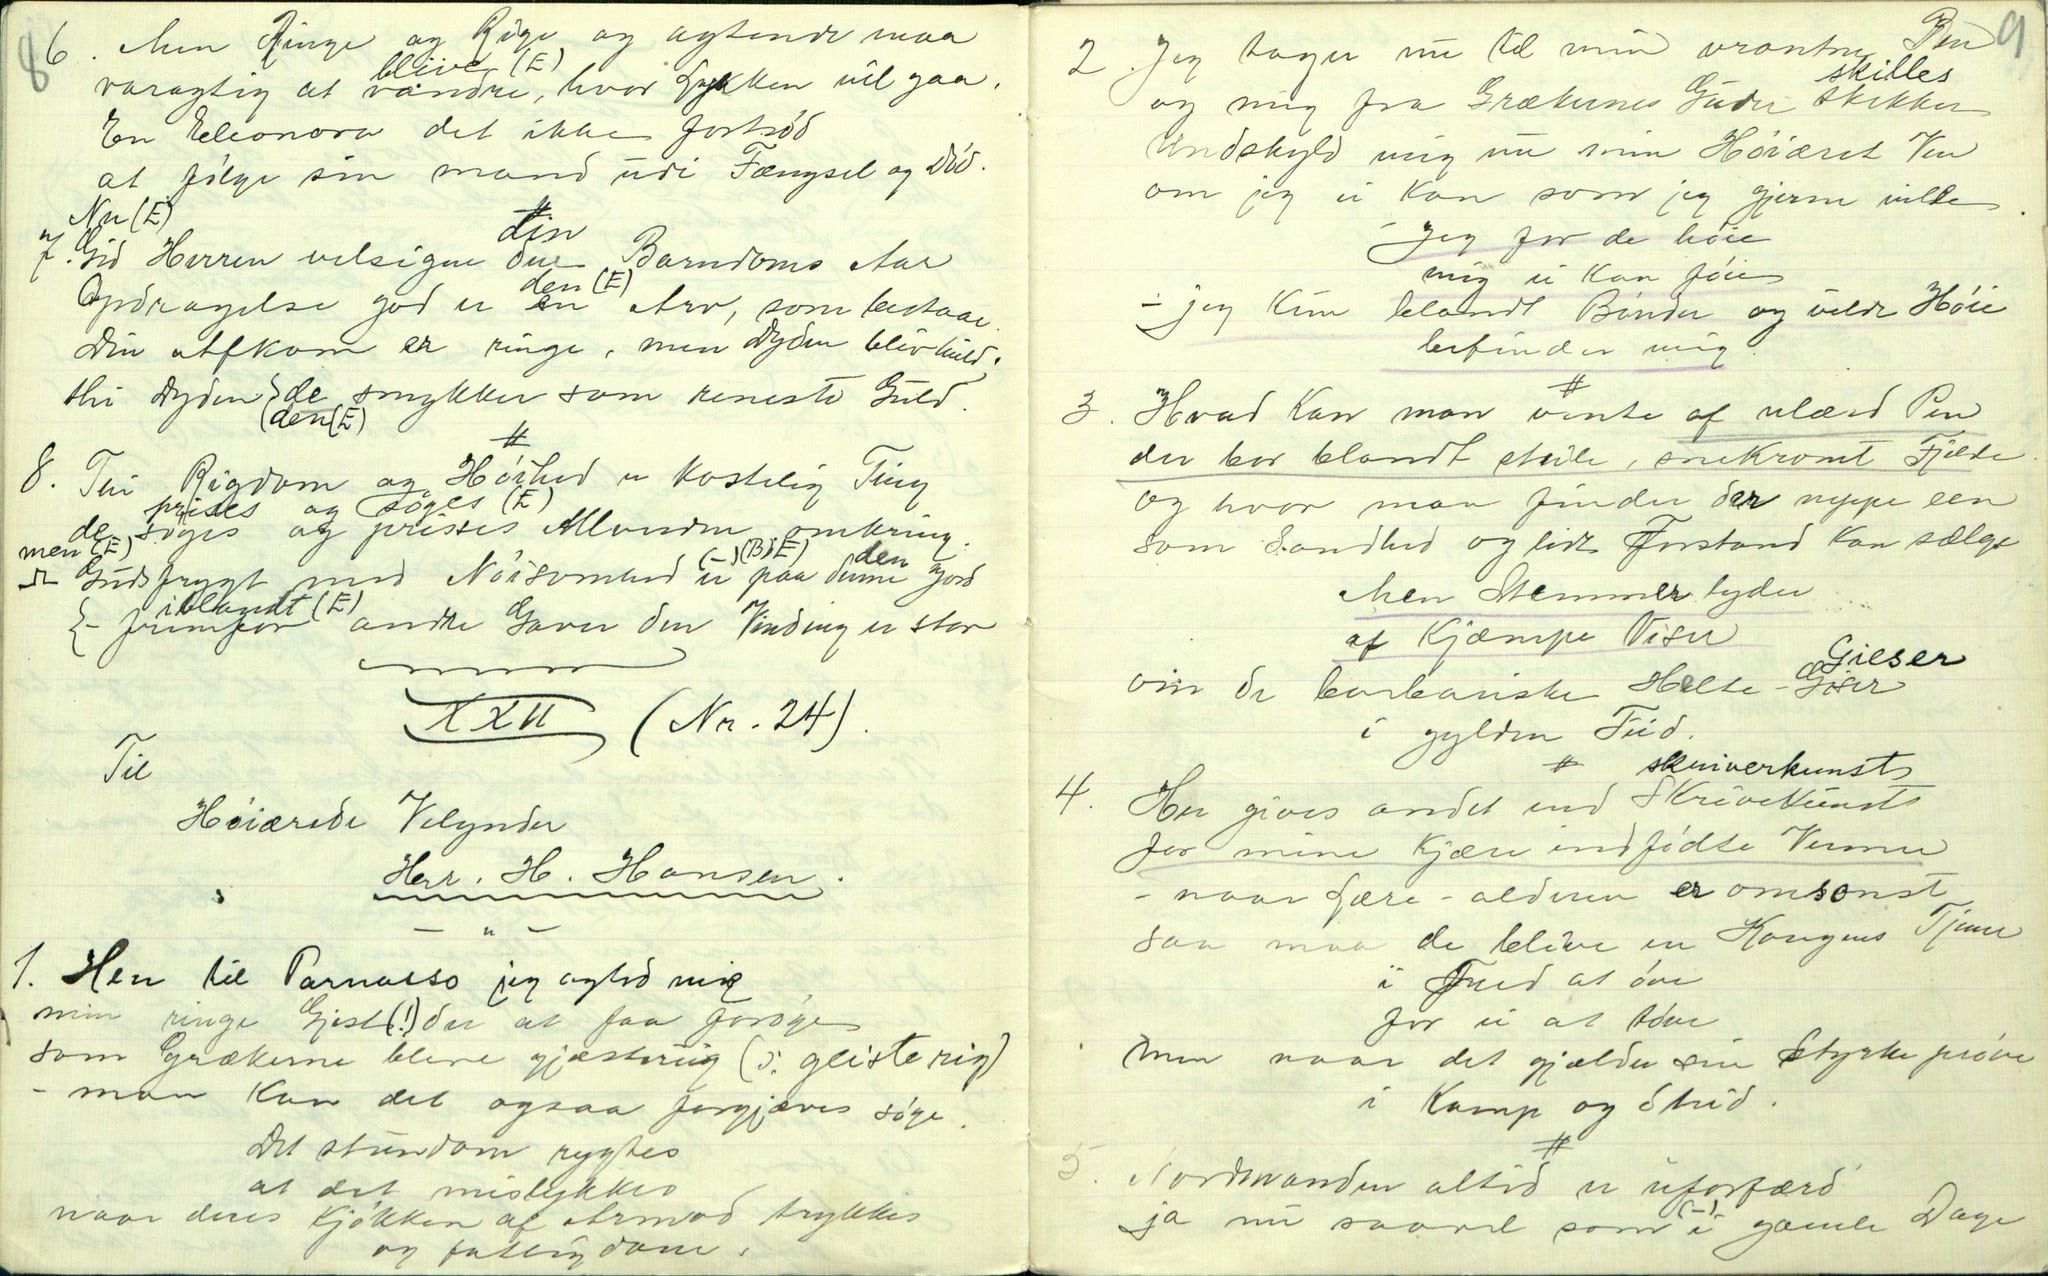 8
6. Men Ringe og Rige og agtende maa
blive (E)
varagtig at vandre, hvor Lykken vil gaa.
En Eleonora det ikke fortrød
at følge sin mand udi Fængsel og Død.
#
Nu (E) din
7. Gid Herren velsigne dine Barndoms Aar
den (E)
Opdragelse god er en Arv, som bestaar.
Din Afkom er ringe, men Dyden bliv huld,
thi Dyden de smykker som reneste Guld.
(den (E)
#
8. Thi Rigdom og Høihed er kostelig Ting
prises og søges (E)
de søges og prises Allvunden omkring.
men (E) (-) (B)(E) den
Gudsfrygt med Nøisomhed er paa denne Jord
iblandt (E)
- fremfor andre Gaver den Vinding er stor
XXII (Nr. 24).
Til
Høiærede Velynder
Herr. H. Hansen.
- " -
1. Hen til Parnasso jeg agted mig
min ringe Gjest (!) der at faa forøge
som Grækerne bleve gjæsteriig (ɔ: geisterig)
- man kan det ogsaa forgjæves søge.
Det stundom rygtes
at det mislykkes
naar deres Kjøkken af Armod trykkes
og fattigdom.
9
2. Jeg tager nu til min vrantne Pen
skilles
og mig fra Grækernes Guder skikker
Undskyld mig nu min Høiæret Ven
om jeg ei kan som jeg gjerne vilde.
- Jeg for de høie
mig ei kan føie
- jeg kun blandt Bønder og vilde Høie
befinder mig.
#
3. Hvad kan man vente af ulærd Pen
der bor blandt steile, snekromt Fjelde.
og hvor man finder der neppe een
som Sandhed og lidt Forstand kan sælge
Men Stemmer lyder
af Kjæmpe Viser
Gieser
om de barbariske Helte-Gøser
i gylden Tiid.
#
skriverkunst
4. Her gives andet end Skrivekunst
for mine kjære indfødte Venner
- naar Lære-alderen er omsonst
saa maa de blive en Kongens Tjener
i Fred at øve
for ei at tøve
men naar det gjælder sin Styrke prøve
i Kamp og Strid.
#
5. Nordmanden altid er uforfærd
(-)
ja nu saavel som i gamle Dage